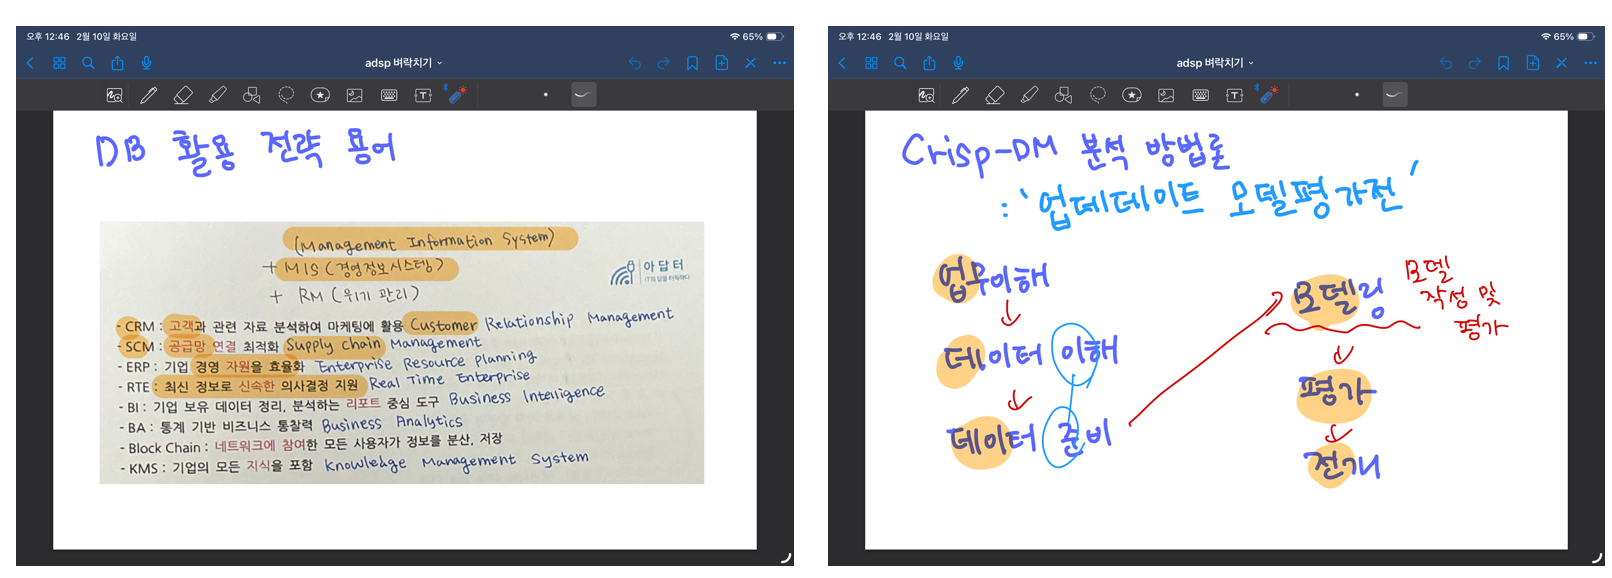 오후 12:46 2월 10일 화요일
65%
adsp 벼락치기
DB 활용 전략 용어
(Management Information System)
+ MIS (경영정보시스템)
+ RM (위기 관리)
아답터
IT의 답을 터득하다
- CRM : 고객과 관련 자료 분석하여 마케팅에 활용 Customer Relationship Management
- SCM : 공급망 연결 최적화 Supply chain Management
- ERP : 기업 경영 자원을 효율화 Enterprise Resource planning
- RTE : 최신 정보로 신속한 의사결정 지원 Real Time Enterprise
- BI : 기업 보유 데이터 정리, 분석하는 리포트 중심 도구 Business Intelligence
- BA : 통계 기반 비즈니스 통찰력 Business Analytics
- Block Chain : 네트워크에 참여한 모든 사용자가 정보를 분산, 저장
- KMS : 기업의 모든 지식을 포함 Knowledge Management System
오후 12:46 2월 10일 화요일
65%
adsp 벼락치기
Crisp-DM 분석 방법론
: '업데데이트 모델평가전'
업무이해
데이터 이해
데이터 준비
모델링
모델
작성 및
평가
평가
전개